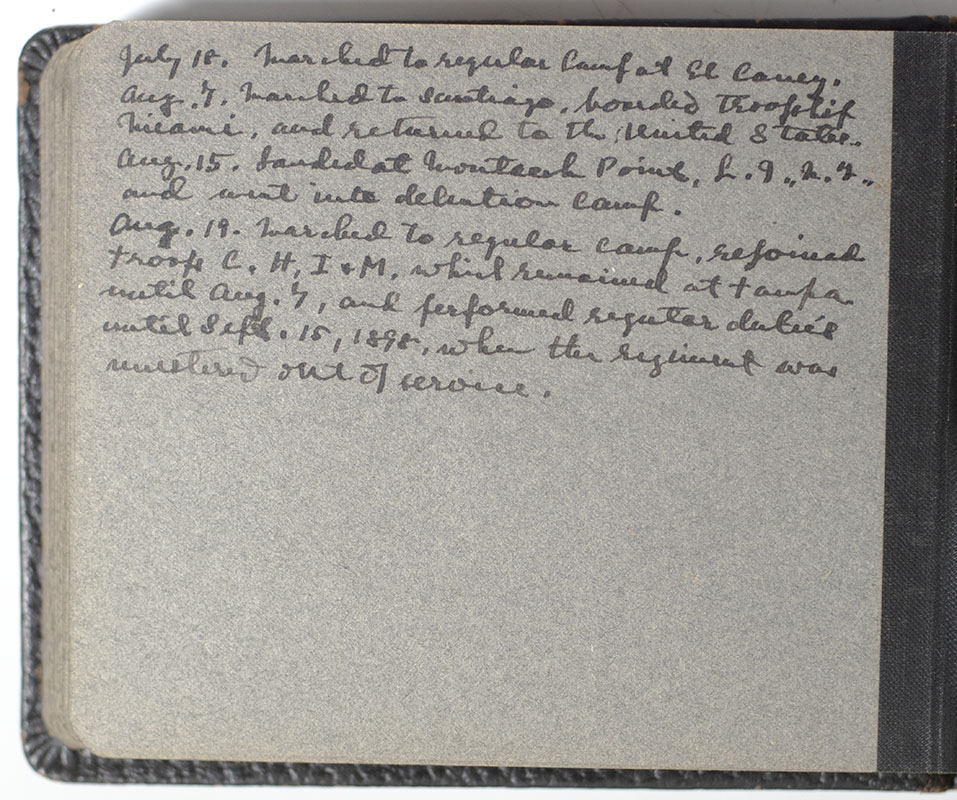 July 18. Marched to regular Camp at El Caney.
Aug. 7. Marched to Santiago, boarded troopship
Miami, and returned to the United States.
Aug. 15. Landed at Montauk Point, L. I., N. Y.,
and went into detention Camp.
Aug. 19. Marched to regular Camp, rejoined
troops C, H, I & M, which remained at Tampa
until Aug. 7, and performed regular duties
until Sept. 15, 1898, when the regiment was
mustered out of service.